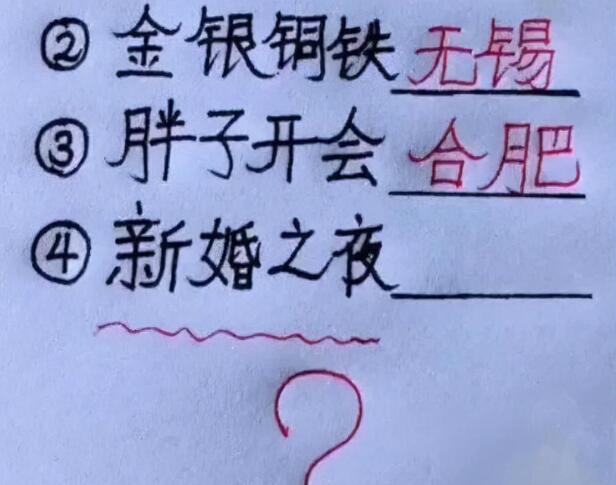 ② 金银铜铁 无锡
③ 胖子开会 合肥
④ 新婚之夜
?